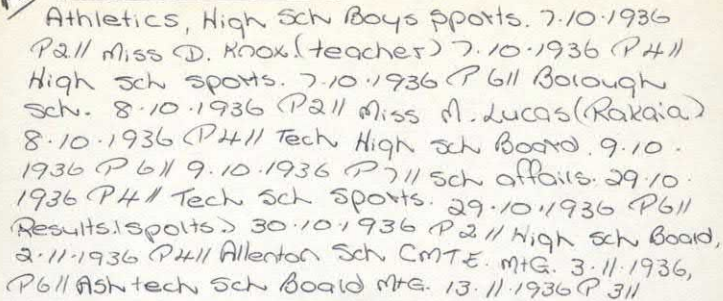 Athletics, High Sch Boys sports. 7.10.1936
P2// Miss D. Knox.(teacher) 7.10.1936 P4//
High Sch sports. 7.10.1936 P6// Borough
Sch. 8.10.1936 P2// Miss M. Lucas(Rakaia)
8.10.1936 P4// Tech High Sch Board. 9.10.
1936 P6// 9.10.1936 P7// Sch affairs. 29.10.
1936 P4// Tech Sch Sports. 29.10.1936 P6//
Results.(sports.) 30.10.1936 P2// High Sch Board,
2.11.1936 P4// Allenton Sch CMTE. MtG. 3.11.1936,
P6// Ash tech Sch Board MtG. 13.11.1936 P3//